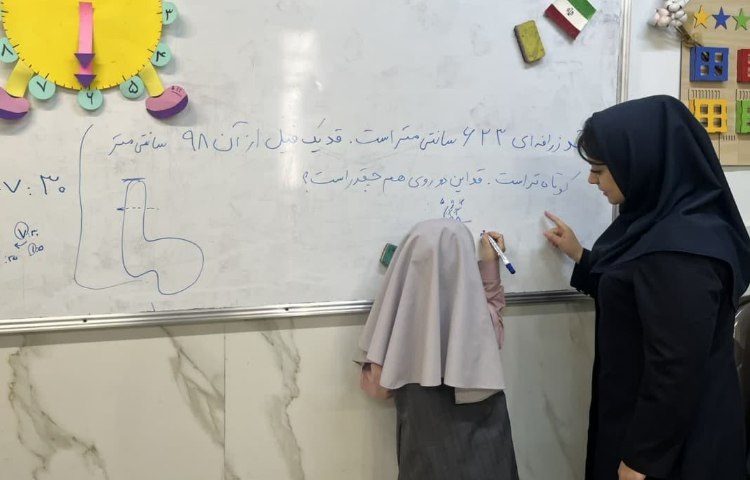 قد زرافه‌ای ۶۲۳ سانتی متر است. قد یک فیل از آن ۹۸ سانتی متر
کوتاه تر است. قد این دو روی هم چقدر است؟
۷:۳۰
۳
۴
۵
۶
۷
۸